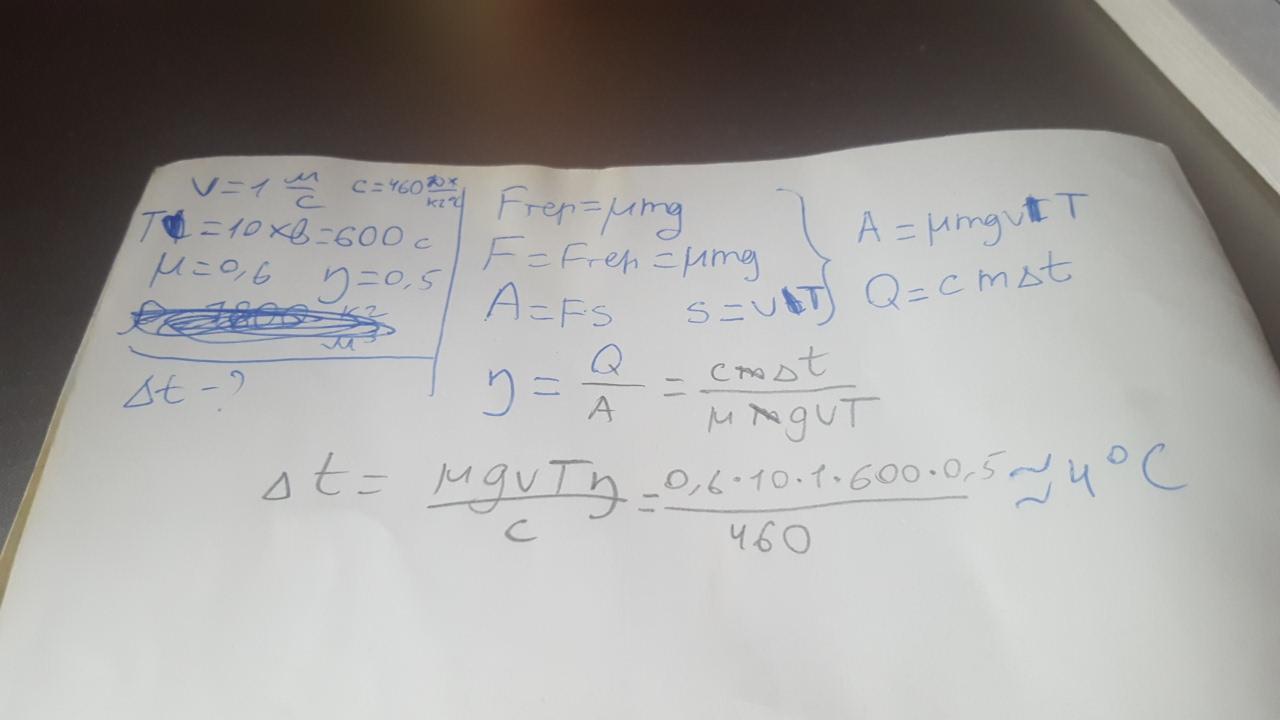 v = 1 м/с c = 460 Дж/кг°С
T = 10 хв = 600 с
μ = 0,6 η = 0,5
Δt - ?
Fтер = μmg
F = Fтер = μmg
A = Fs s = vT
A = μmgvT
Q = cmΔt
η = Q/A = cmΔt/μmgvT
Δt = μgvTη/c = 0,6·10·1·600·0,5/460 ≈ 4°C